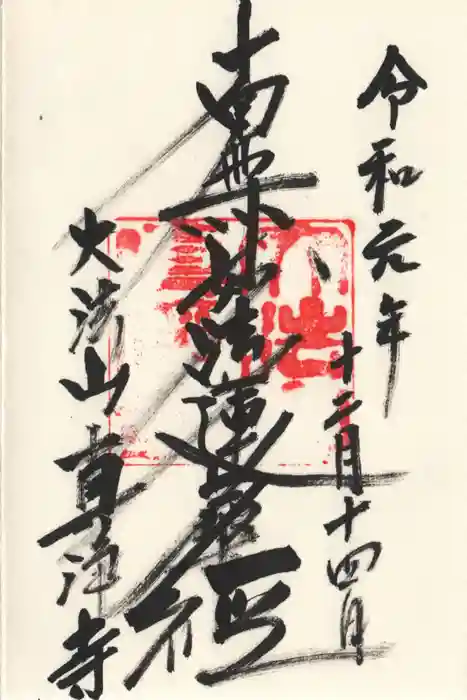 令和元年
十二月十四日
南無妙法蓮華経
大法山真浄寺